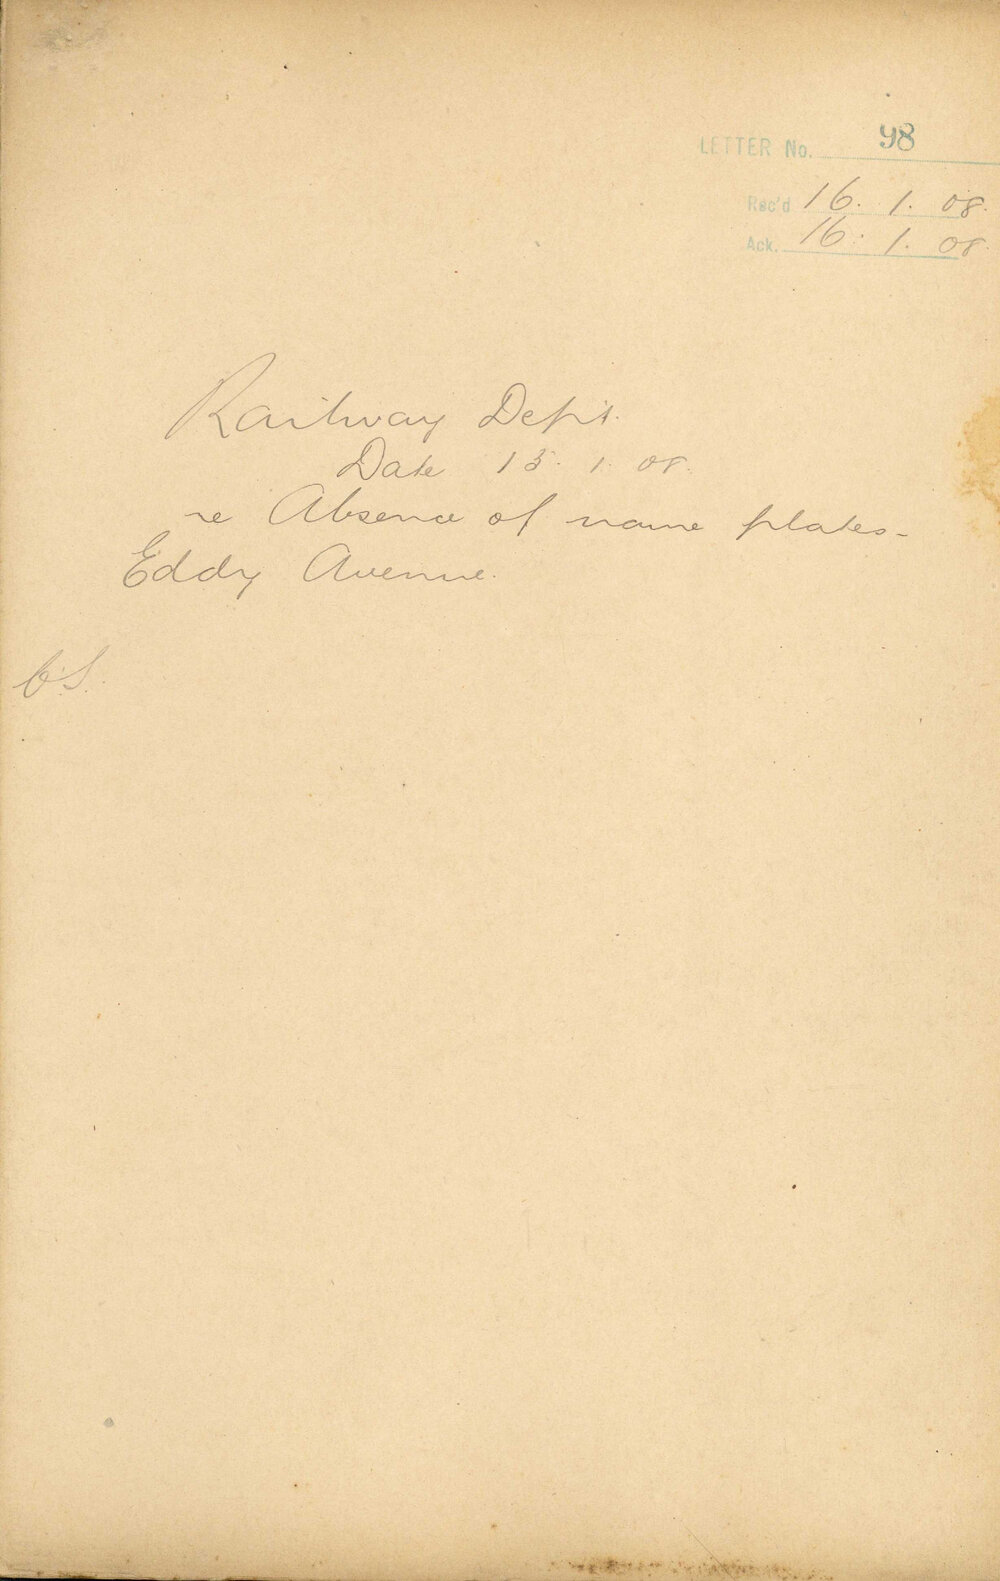 LETTER No. 98
Rec'd 16. 1. 08.
Ack. 16. 1. 08.
Railway Dept.
Date 15. 1. 08.
re Absence of name plates-
Eddy Avenue.